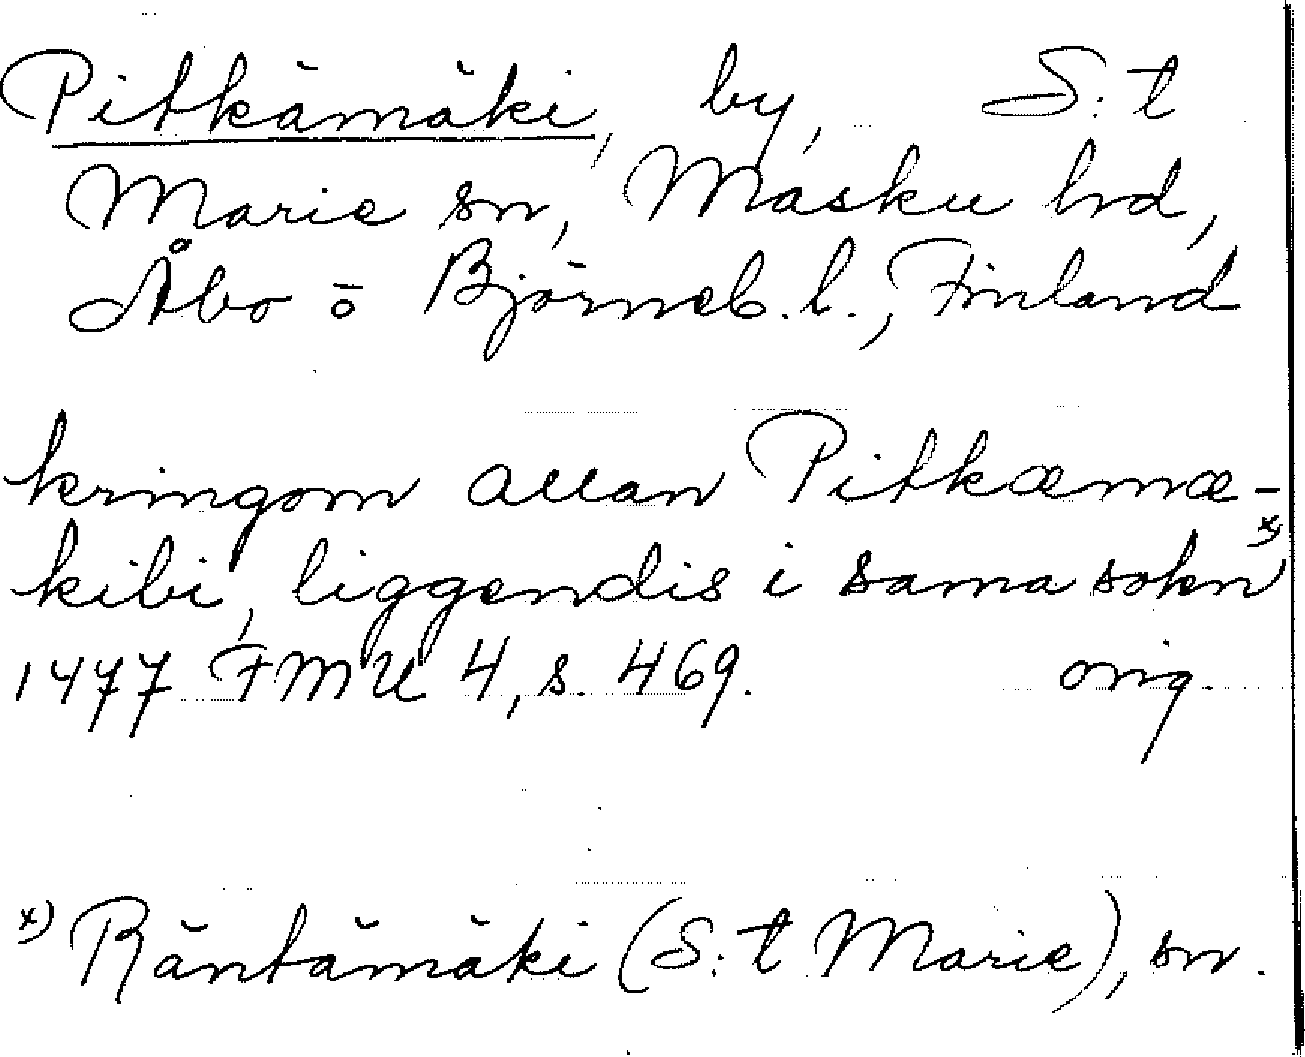 Pitkämäki, by, S:t
Marie sn, Masku hd,
Åbo ö Björneb. l., Finland
kringom allan Pitkæmæ-
kibi, liggendis i sama sokn x)
1477 FMU 4, s. 469. orig.
x) Räntämäki (S:t Marie), sn.